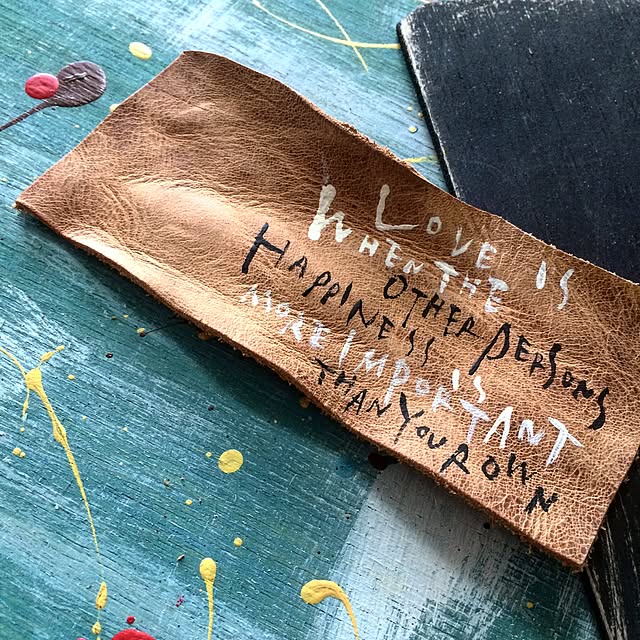 LOVE IS
WHEN THE
OTHER PERSONS
HAPPINESS IS
MORE IMPORTANT
THAN YOUR OWN